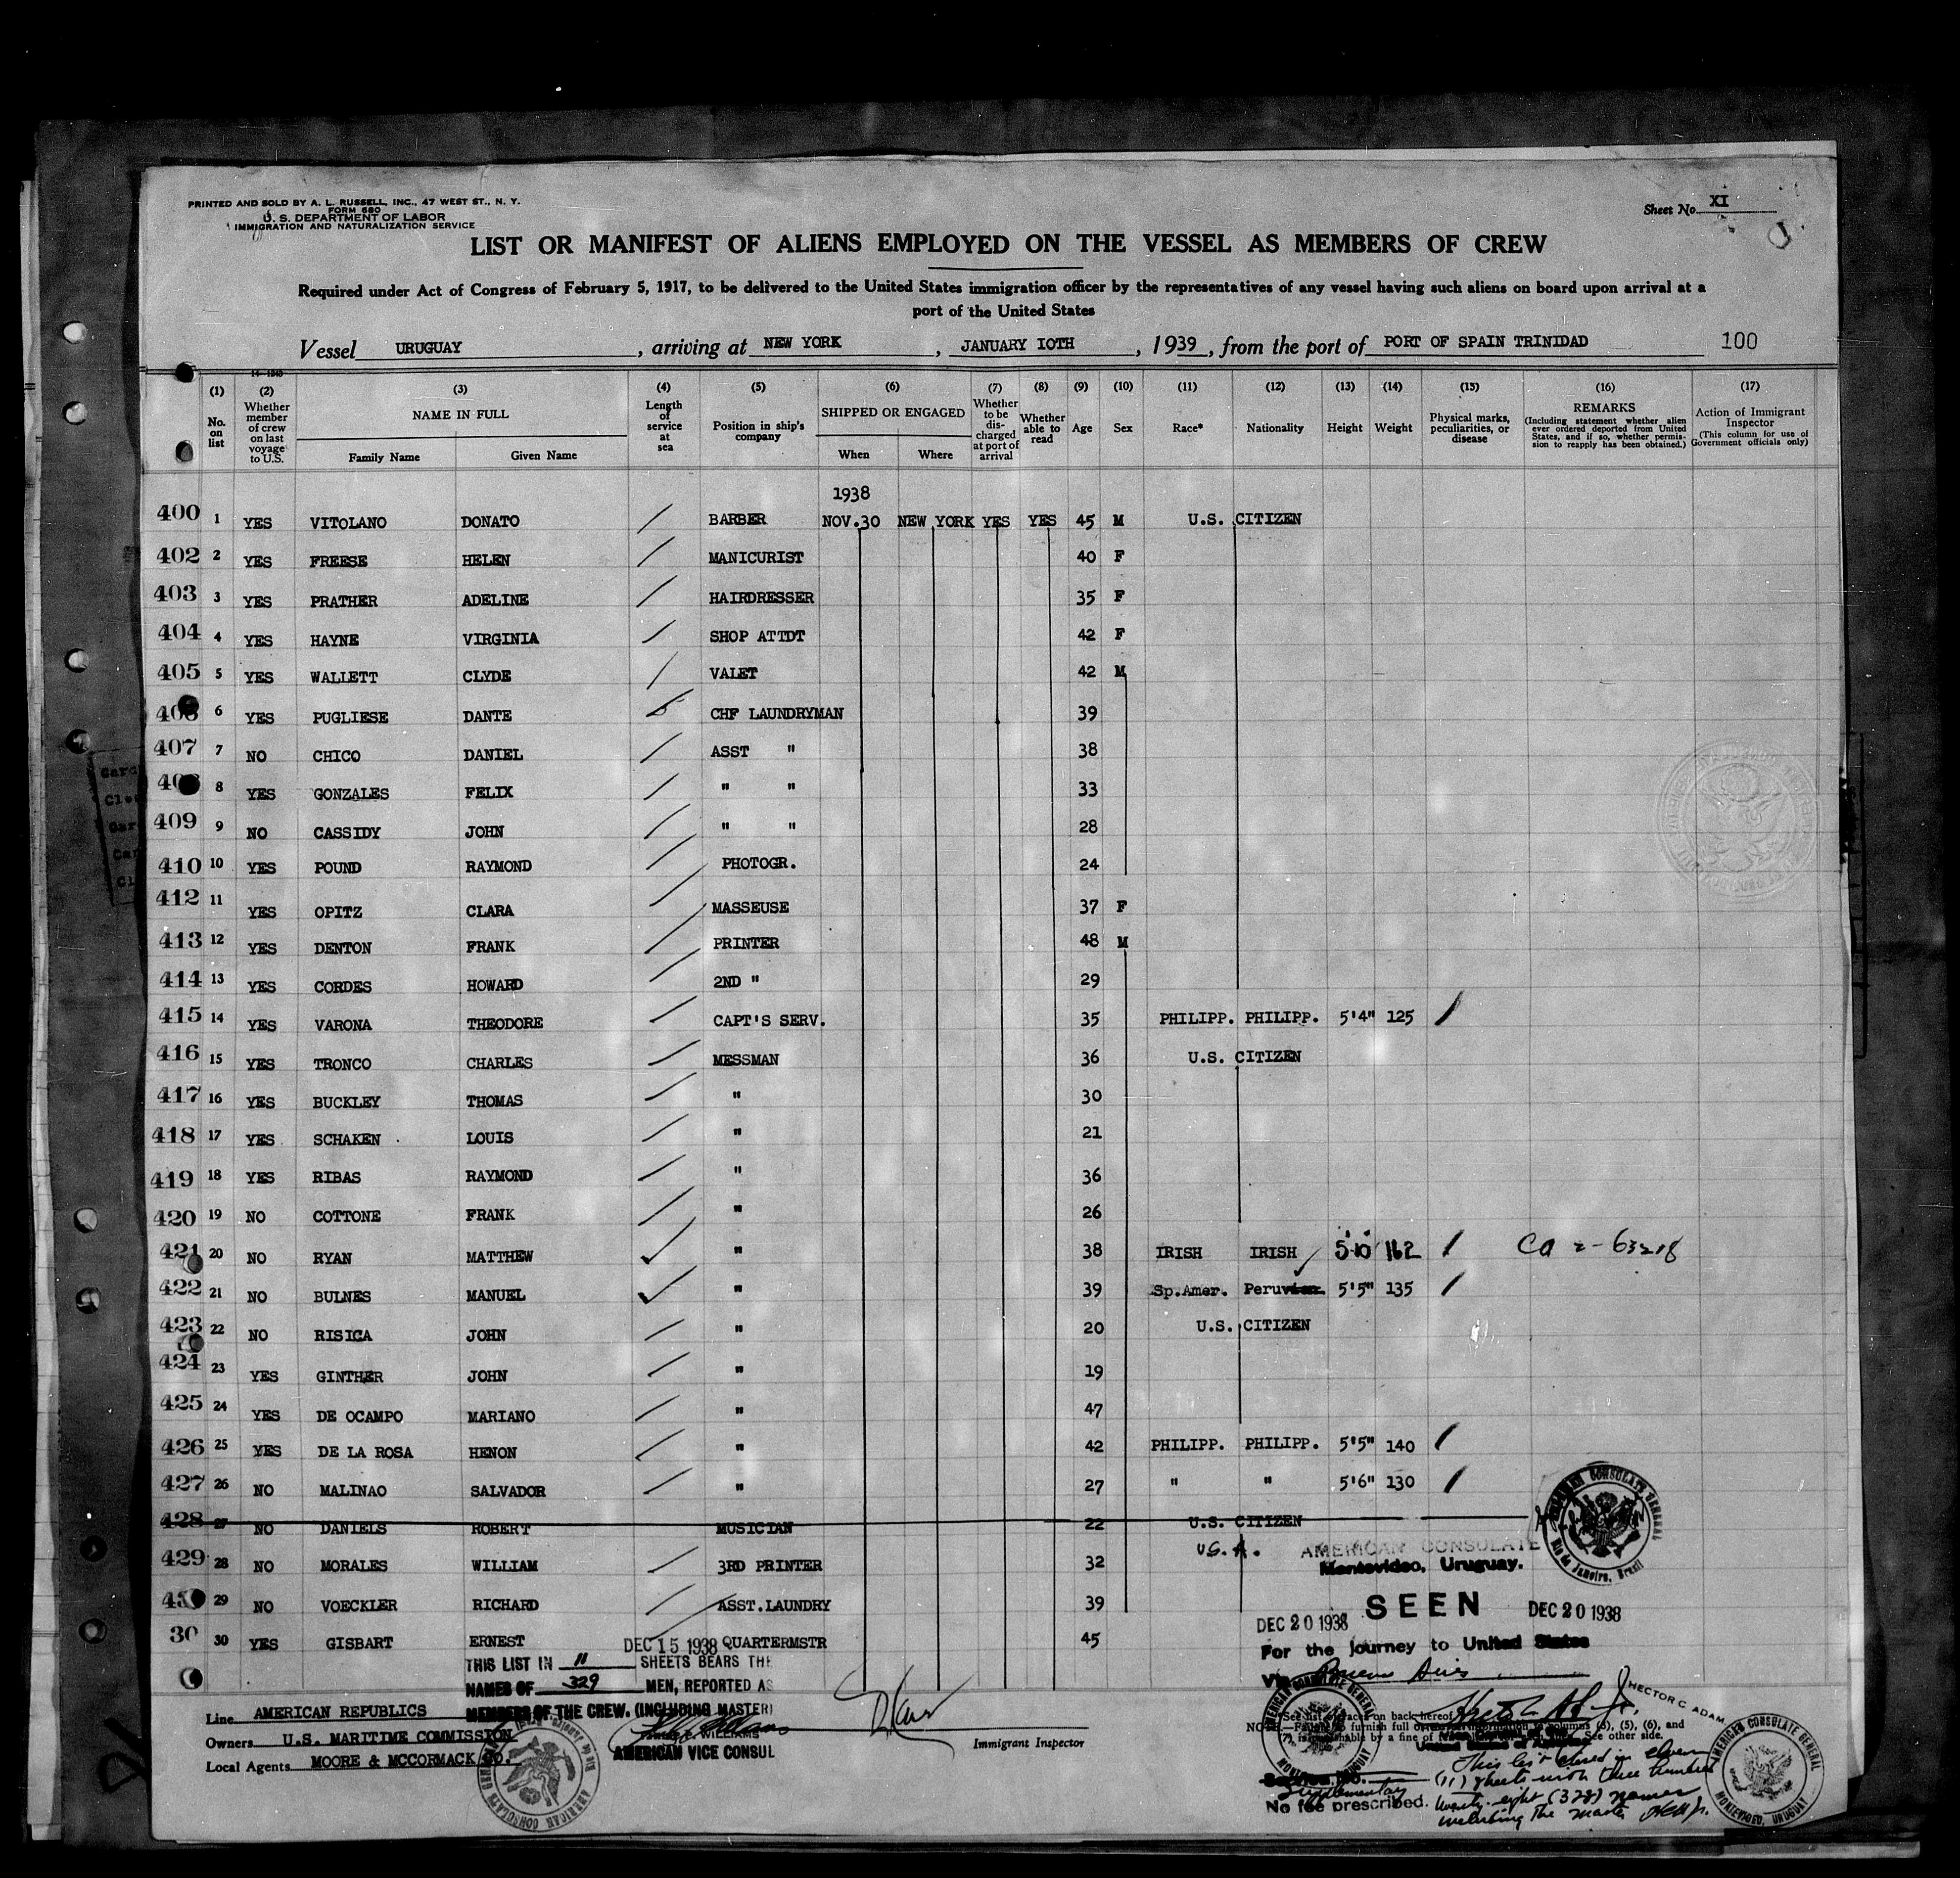 PRINTED AND SOLD BY A. L. RUSSELL, INC., 47 WEST ST., N. Y.
FORM 680
U. S. DEPARTMENT OF LABOR
IMMIGRATION AND NATURALIZATION SERVICE
Sheet No. XI
LIST OR MANIFEST OF ALIENS EMPLOYED ON THE VESSEL AS MEMBERS OF CREW
Required under Act of Congress of February 5, 1917, to be delivered to the United States immigration officer by the representatives of any vessel having such aliens on board upon arrival at a
port of the United States
Vessel URUGUAY, arriving at NEW YORK, JANUARY IOTH, 1939, from the port of PORT OF SPAIN TRINIDAD 100
(1) No. on list
(2) Whether member of crew on last voyage to U.S.
(3) NAME IN FULL Family Name Given Name
(4) Length of service at sea
(5) Position in ship's company
(6) SHIPPED OR ENGAGED When Where
(7) Whether to be discharged at port of arrival
(8) Whether able to read
(9) Age
(10) Sex
(11) Race*
(12) Nationality
(13) Height
(14) Weight
(15) Physical marks, peculiarities, or disease
(16) REMARKS (Including statement whether alien ever ordered deported from United States, and if so, whether permission to reapply has been obtained.)
(17) Action of Immigrant Inspector (This column for use of Government officials only)
1938
400 1 YES VITOLANO DONATO BARBER NOV.30 NEW YORK YES YES 45 M U.S. CITIZEN
402 2 YES FREESE HELEN MANICURIST 40 F
403 3 YES PRATHER ADELINE HAIRDRESSER 35 F
404 4 YES HAYNE VIRGINIA SHOP ATTDT 42 F
405 5 YES WALLETT CLYDE VALET 42 M
406 6 YES PUGLIESE DANTE CHF LAUNDRYMAN 39
407 7 NO CHICO DANIEL ASST " 38
8 YES GONZALES FELIX " " 33
409 9 NO CASSIDY JOHN " " 28
410 10 YES POUND RAYMOND PHOTOGR. 24
412 11 YES OPITZ CLARA MASSEUSE 37 F
413 12 YES DENTON FRANK PRINTER 48 M
414 13 YES CORDES HOWARD 2ND " 29
415 14 YES VARONA THEODORE CAPT'S SERV. 35 PHILIPP. PHILIPP. 5'4" 125
416 15 YES TRONCO CHARLES MESSMAN 36 U.S. CITIZEN
417 16 YES BUCKLEY THOMAS " 30
418 17 YES SCHAKEN LOUIS " 21
419 18 YES RIBAS RAYMOND " 36
420 19 NO COTTONE FRANK " 26
421 20 NO RYAN MATTHEW " 38 IRISH IRISH 5'10" 162 Ca 2-63218
422 21 NO BULNES MANUEL " 39 Sp.Amer. Peruvian 5'5" 135
423 22 NO RISICA JOHN " 20 U.S. CITIZEN
424 23 YES GINTHER JOHN " 19
425 24 YES DE OCAMPO MARIANO " 47
426 25 YES DE LA ROSA HENON " 42 PHILIPP. PHILIPP. 5'5" 140
427 26 NO MALINAO SALVADOR " 27 " " 5'6" 130
428 27 NO DANIELS ROBERT MUSICIAN 22 U.S. CITIZEN
429 28 NO MORALES WILLIAM 3RD PRINTER 32 U.S.A.
29 NO VOECKLER RICHARD ASST.LAUNDRY 39
30 30 YES GISBART ERNEST QUARTERMSTR 45
AMERICAN CONSULATE
Montevideo, Uruguay.
SEEN
DEC 20 1938 DEC 20 1938
For the journey to United States
Via Buenos Aires
AMERICAN CONSULATE GENERAL
Rio de Janeiro, Brazil
DEC 15 1938
THIS LIST IN 11 SHEETS BEARS THE
NAMES OF 329 MEN, REPORTED AS
MEMBERS OF THE CREW. (INCLUDING MASTER)
WILLIAMS
AMERICAN VICE CONSUL
Line AMERICAN REPUBLICS
Owners U.S. MARITIME COMMISSION
Local Agents MOORE & MCCORMACK CO.
Immigrant Inspector
HECTOR C. ADAM
*See list of races on back hereof.
NOTE.—Failure to furnish full or
information in columns (3), (5), (6), and
is punishable by a fine of
See other side.
Supplementary
No fee prescribed.
This list closed in eleven
(11) sheets with three hundred
twenty-eight (328) names
including the master HCA Jr.
AMERICAN CONSULATE GENERAL
MONTEVIDEO, URUGUAY
AMERICAN CONSULATE GENERAL